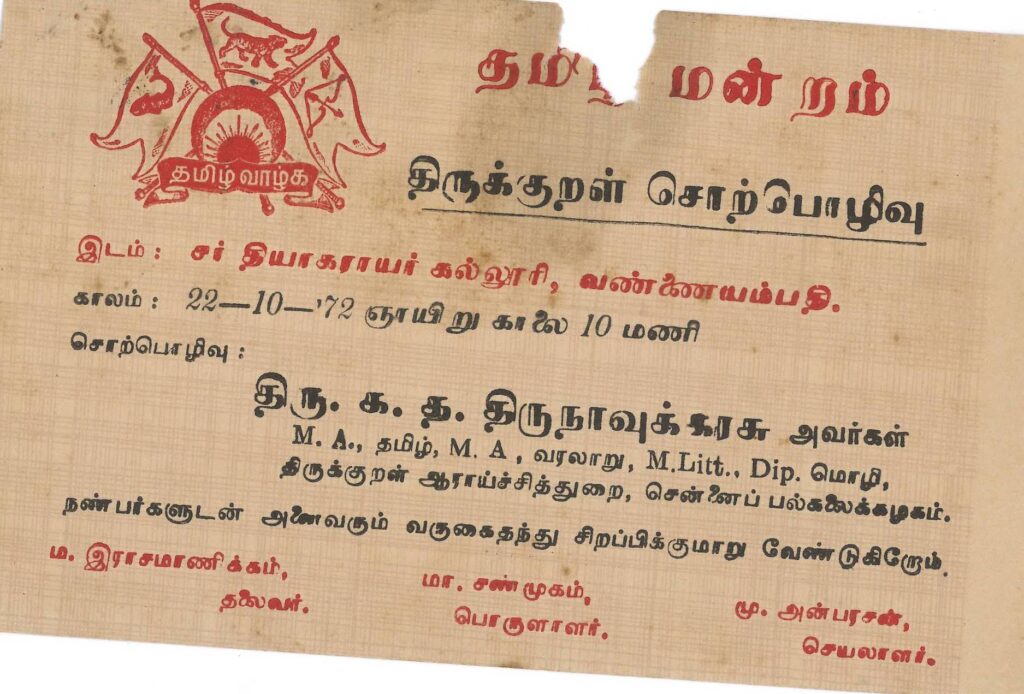 தமிழ் மன்றம்
தமிழ் வாழ்க
திருக்குறள் சொற்பொழிவு
இடம் : சர் தியாகராயர் கல்லூரி, வண்ணையம்பதி.
காலம் : 22—10—'72 ஞாயிறு காலை 10 மணி
சொற்பொழிவு :
திரு. க. த. திருநாவுக்கரசு அவர்கள்
M. A., தமிழ், M. A , வரலாறு, M.Litt., Dip. மொழி,
திருக்குறள் ஆராய்ச்சித்துறை, சென்னைப் பல்கலைக்கழகம்.
நண்பர்களுடன் அனைவரும் வருகைதந்து சிறப்பிக்குமாறு வேண்டுகிறோம்.
ம. இராசமாணிக்கம்,
தலைவர்.
மா. சண்முகம்,
பொருளாளர்.
மு. அன்பரசன்,
செயலாளர்.